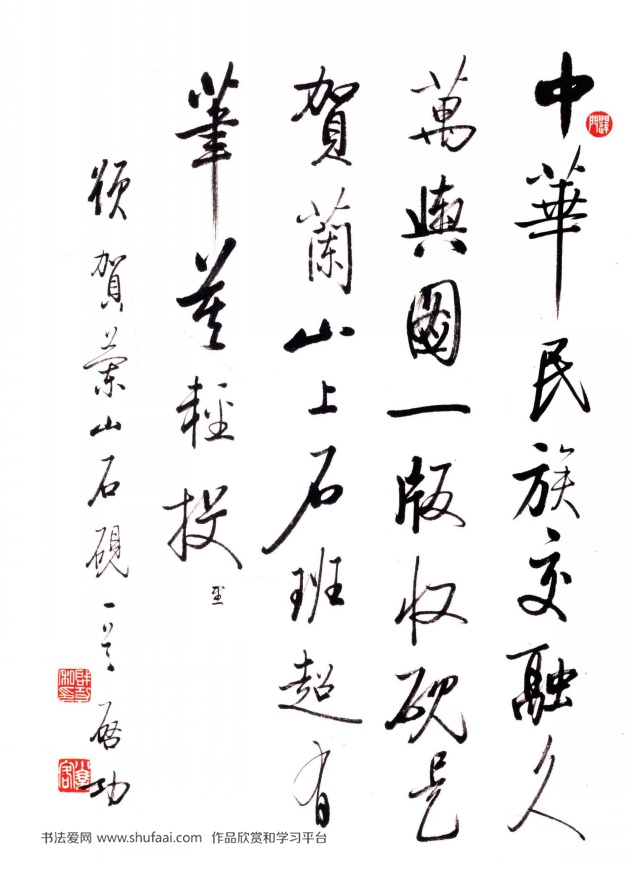 中華民族交融久
萬輿圖一版收硯是
賀蘭山上石班超有
筆莫輕投 里
頌賀蘭山石硯一首 啓功
书法爱网 www.shufaai.com 作品欣赏和学习平台